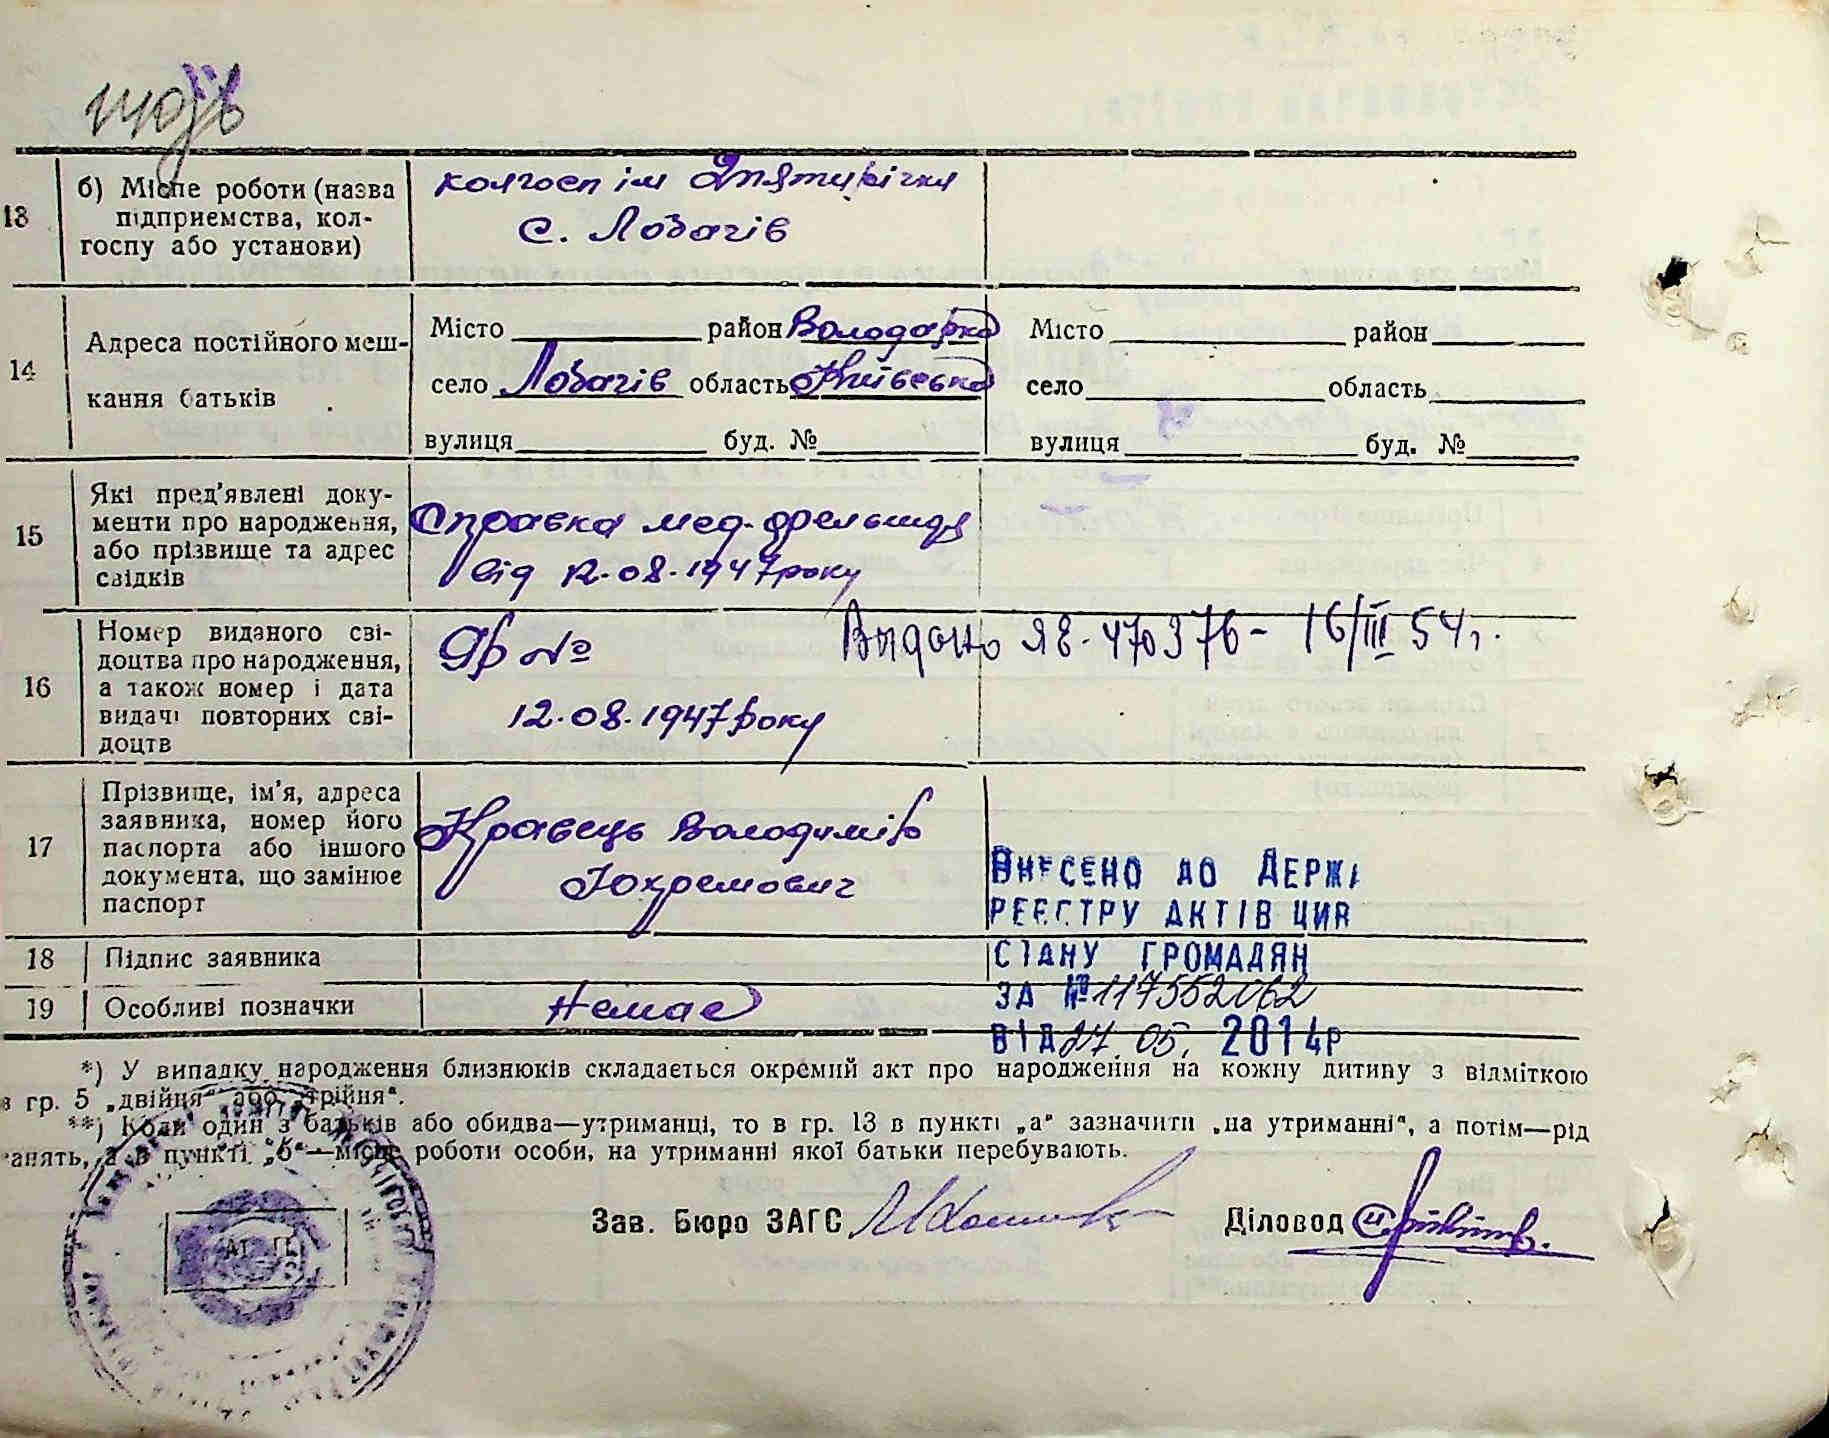 13 б) Місце роботи (назва
підприемства, кол-
госпу або установи)
колгосп ім 2 пятирічки
с. Лобачів
14 Адреса постійного меш-
кання батьків
Місто район Володарка
село Лобачів область Київська
вулиця буд. №
Місто район
село область
вулиця буд. №
15 Які пред'явлені доку-
менти про народження,
або прізвище та адрес
свідків
Справка мед. фрельшера
від 12.08.1947 року
16 Номер виданого сві-
доцтва про народження,
а також номер і дата
видачі повторних сві-
доцтв
№
12.08.1947 року
Видано ЯЕ-470376 - 16/III 54 г.
17 Прізвище, ім'я, адреса
заявника, номер його
паспорта або іншого
документа, що замінює
паспорт
Кравець Володимір
Юхремович
18 Підпис заявника
19 Особливі позначки
Немає
ВНЕСЕНО ДО ДЕРЖ
РЕЄСТРУ АКТІВ ЦИВ
СТАНУ ГРОМАДЯН
ЗА № 117552062
ВІД 27.05. 2014р
*) У випадку народження близнюків складається окремий акт про народження на кожну дитину з відміткою
в гр. 5 „двійня“ або „трійня“.
**) Коли один з батьків або обидва—утриманці, то в гр. 13 в пункті „а“ зазначити „на утриманні“, а потім—рід
занять, а в пункті „б“—місце роботи особи, на утриманні якої батьки перебувають.
Зав. Бюро ЗАГС
Діловод